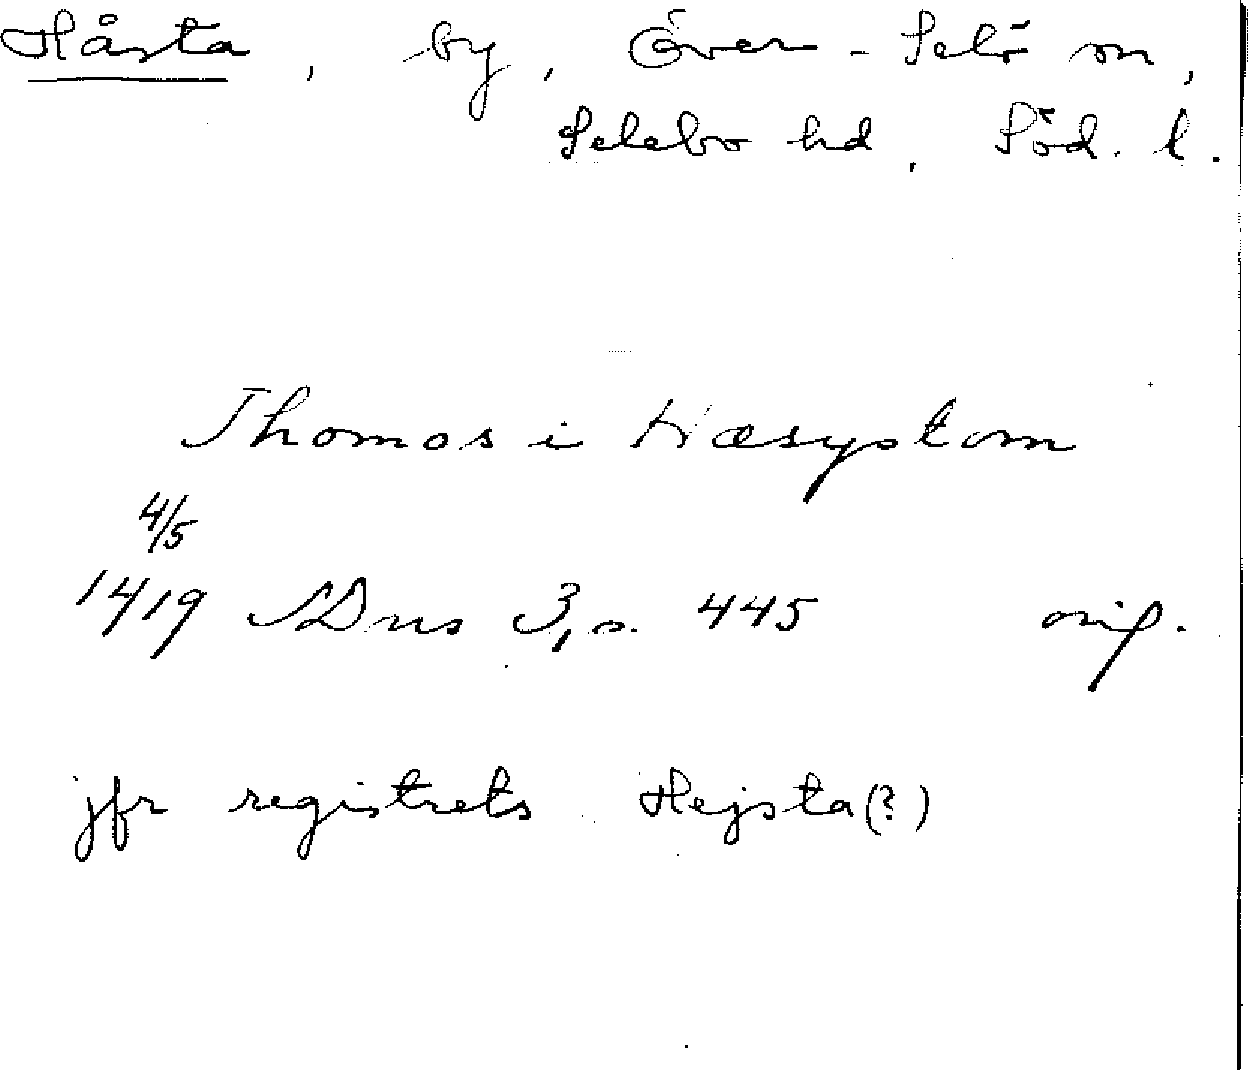 Håsta, by, Över-Selö sn,
Selebo hd, Söd. l.
Thomos i Hæsystom
4/5
1419 SDns 3, s. 445 orig.
jfr registrets Hejsta(?)